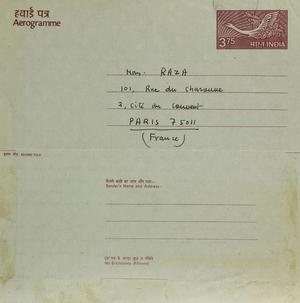 हवाई पत्र
Aerogramme
3.75
भारत INDIA
Mons. RAZA
101, Rue du Charonne
2, Cité du Couvent
PARIS 75011
(France)
SECOND FOLD
भेजने वाले का नाम और पता:-
Sender's Name and Address:-
No Enclosures Allowed